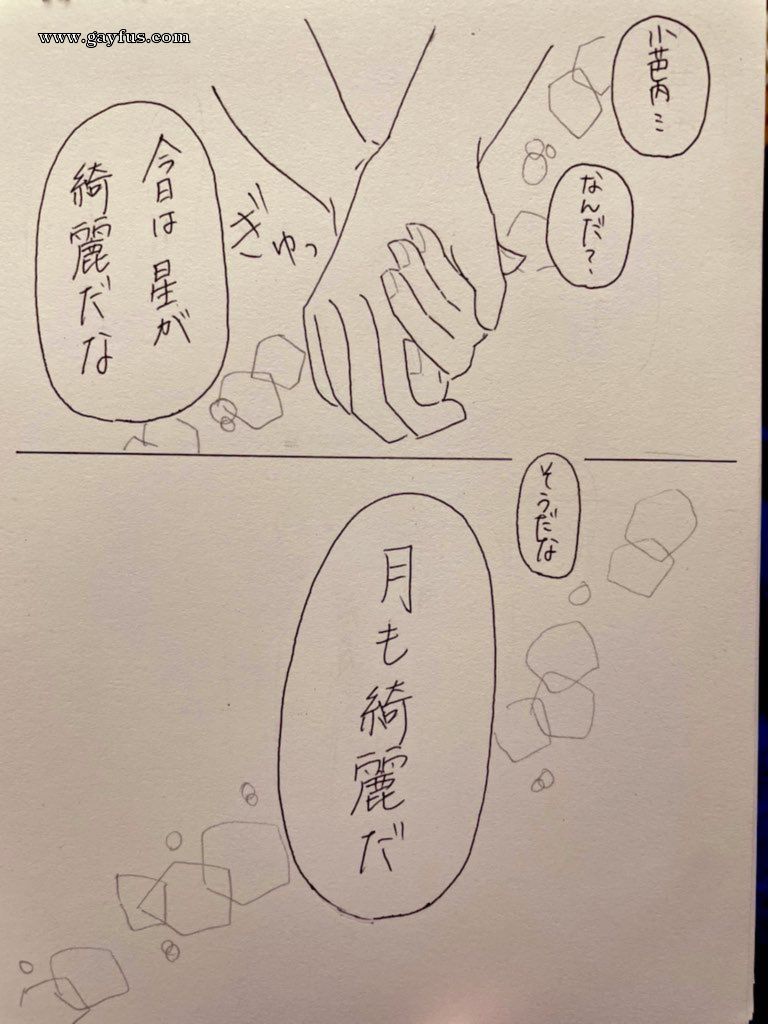 www.gayfus.com
小芭内…
なんだ?
ぎゅっ
今日は星が
綺麗だな
そうだな
月も
綺麗だ